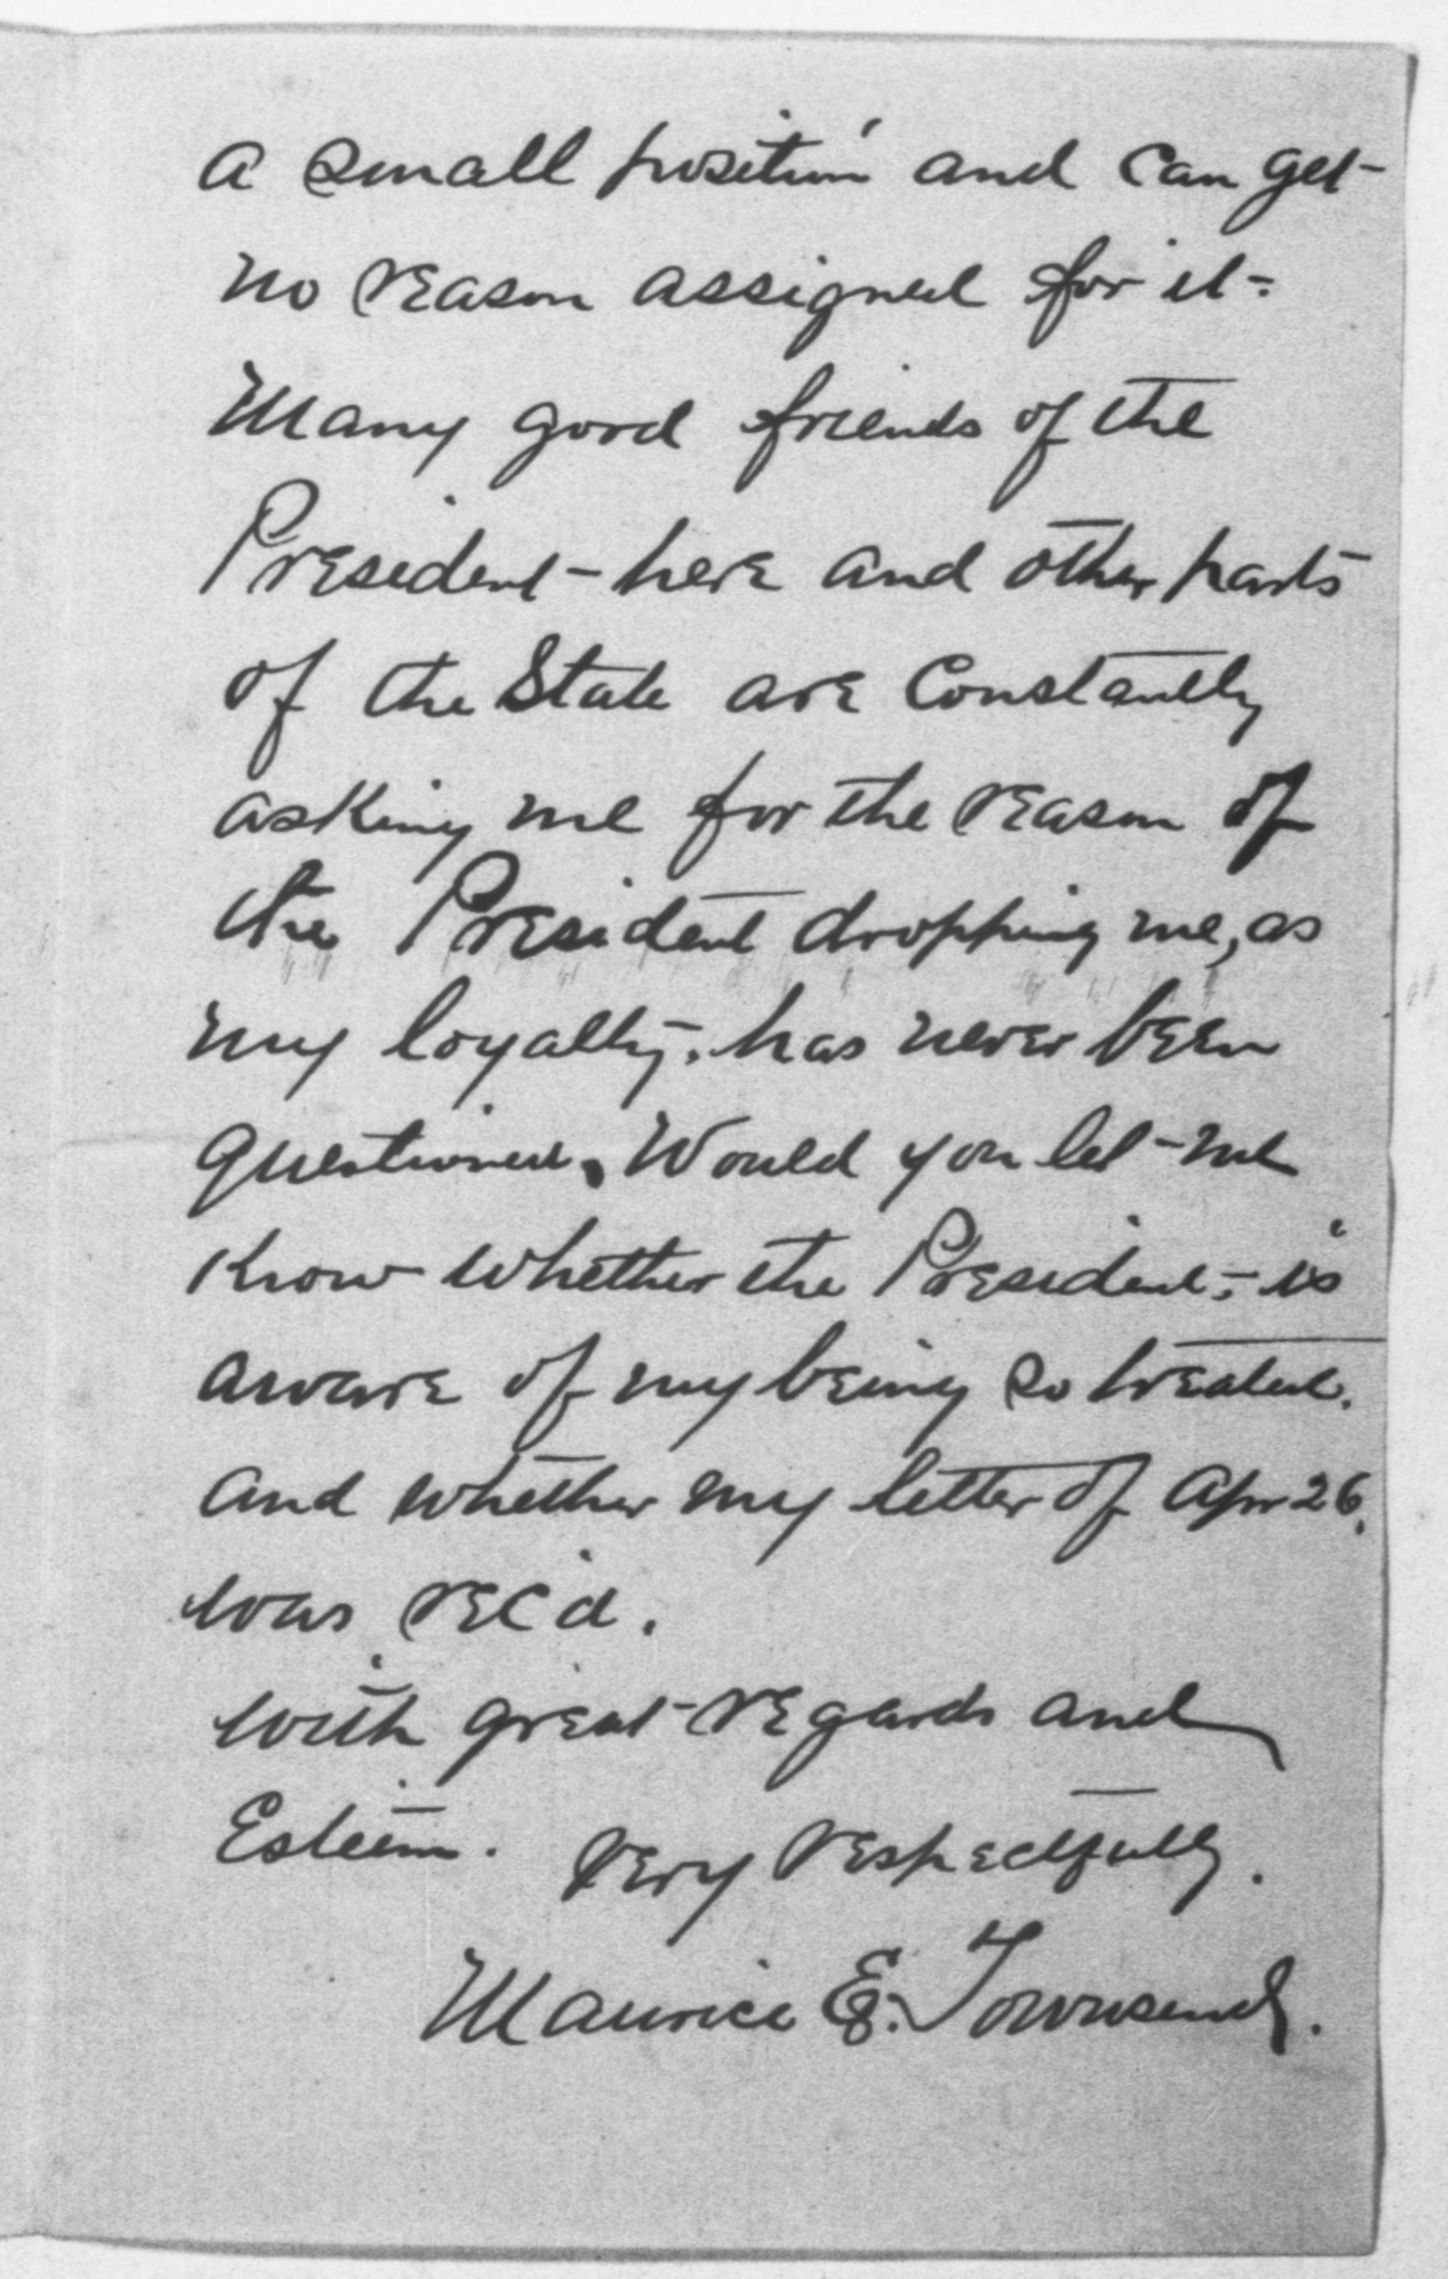 a small position and can get
no reason assigned for it.
Many good friends of the
President here and other parts
of the State are constantly
asking me for the reason of
the President dropping me, as
my loyalty, has never been
questioned. Would you let me
know whether the President, is
aware of my being so treated.
and whether my letter of Apr 26.
was rec'd.
with great regards and
Esteem. Very respectfully.
Maurice E. Townsend.